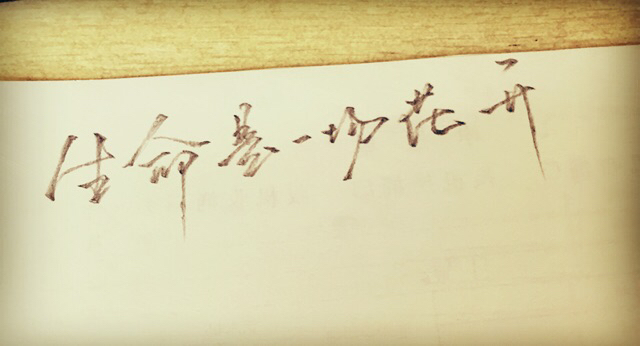 生命是一场花开